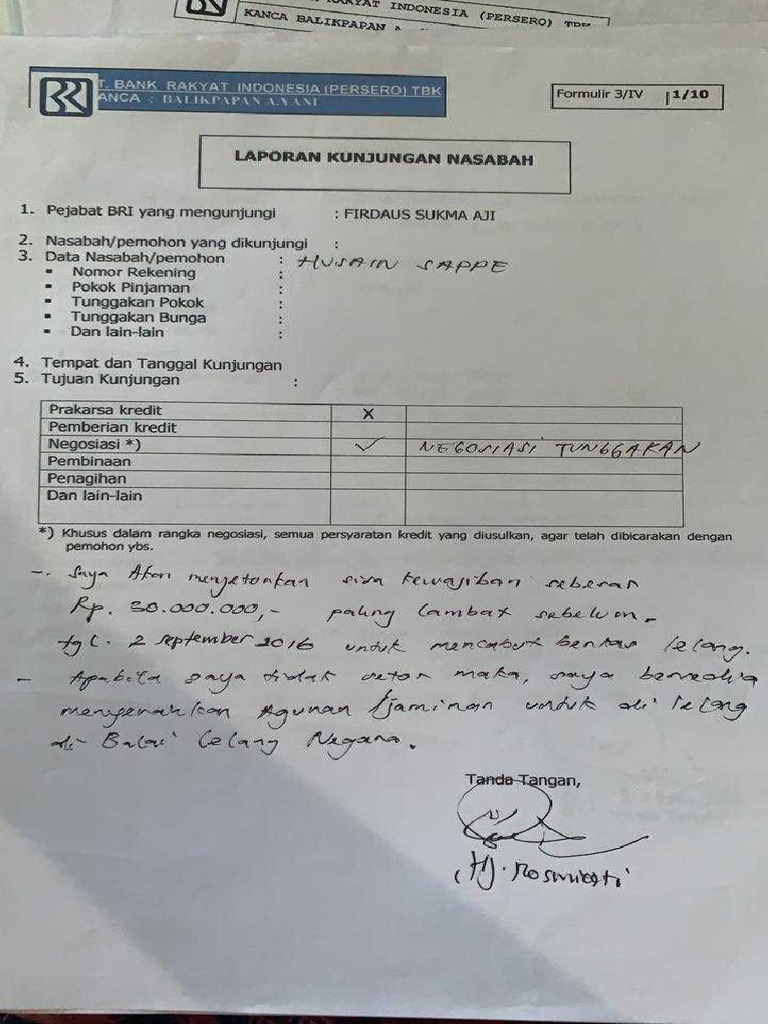 RAKYAT INDONESIA (PERSERO) TBK
KANCA BALIKPAPAN A
T. BANK RAKYAT INDONESIA (PERSERO) TBK
ANCA : BALIKPAPAN A.YANI
Formulir 3/IV 1/10
LAPORAN KUNJUNGAN NASABAH
1. Pejabat BRI yang mengunjungi : FIRDAUS SUKMA AJI
2. Nasabah/pemohon yang dikunjungi :
3. Data Nasabah/pemohon : HUSAIN SAPPE
▪ Nomor Rekening :
▪ Pokok Pinjaman :
▪ Tunggakan Pokok :
▪ Tunggakan Bunga :
▪ Dan lain-lain :
4. Tempat dan Tanggal Kunjungan
5. Tujuan Kunjungan :
Prakarsa kredit X
Pemberian kredit
Negosiasi *) ✓ NEGOSIASI TUNGGAKAN
Pembinaan
Penagihan
Dan lain-lain
*) Khusus dalam rangka negosiasi, semua persyaratan kredit yang diusulkan, agar telah dibicarakan dengan
pemohon ybs.
- Saya Akan menyetorkan sisa kewajiban sebesar
Rp. 30.000.000,- paling lambat sebelum
tgl. 2 September 2016 untuk mencabut berkas lelang.
- Apabila saya tidak setor maka, saya bersedia
menyerahkan Agunan /jaminan untuk di lelang
di Balai Lelang Negara.
Tanda Tangan,
Hj. Rosmiati